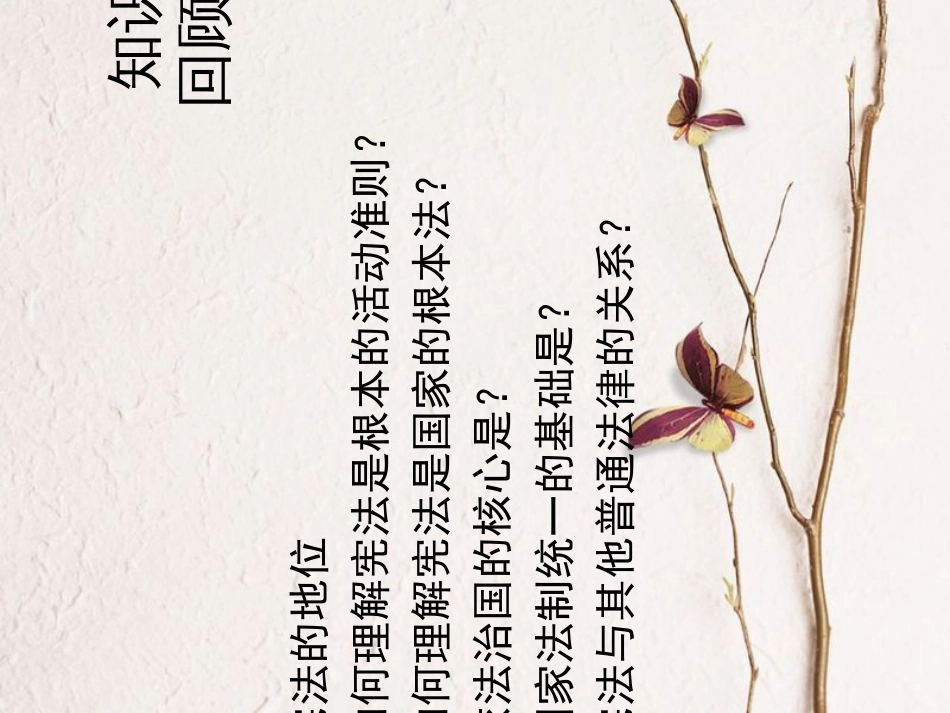 知识
回顾
宪法的地位
如何理解宪法是根本的活动准则？
如何理解宪法是国家的根本法？
依法治国的核心是？
国家法制统一的基础是？
宪法与其他普通法律的关系？